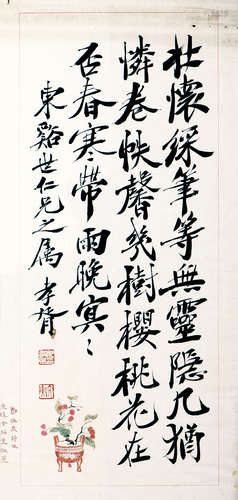 壯懷綵筆等無靈隱几猶
憐卷帙馨幾樹櫻桃花在
否春寒帶雨晚冥〻
東谿世仁兄之属 孝胥